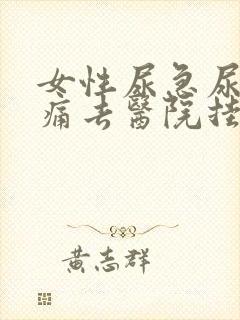 女性尿急尿
痛去醫院挂
黃志群